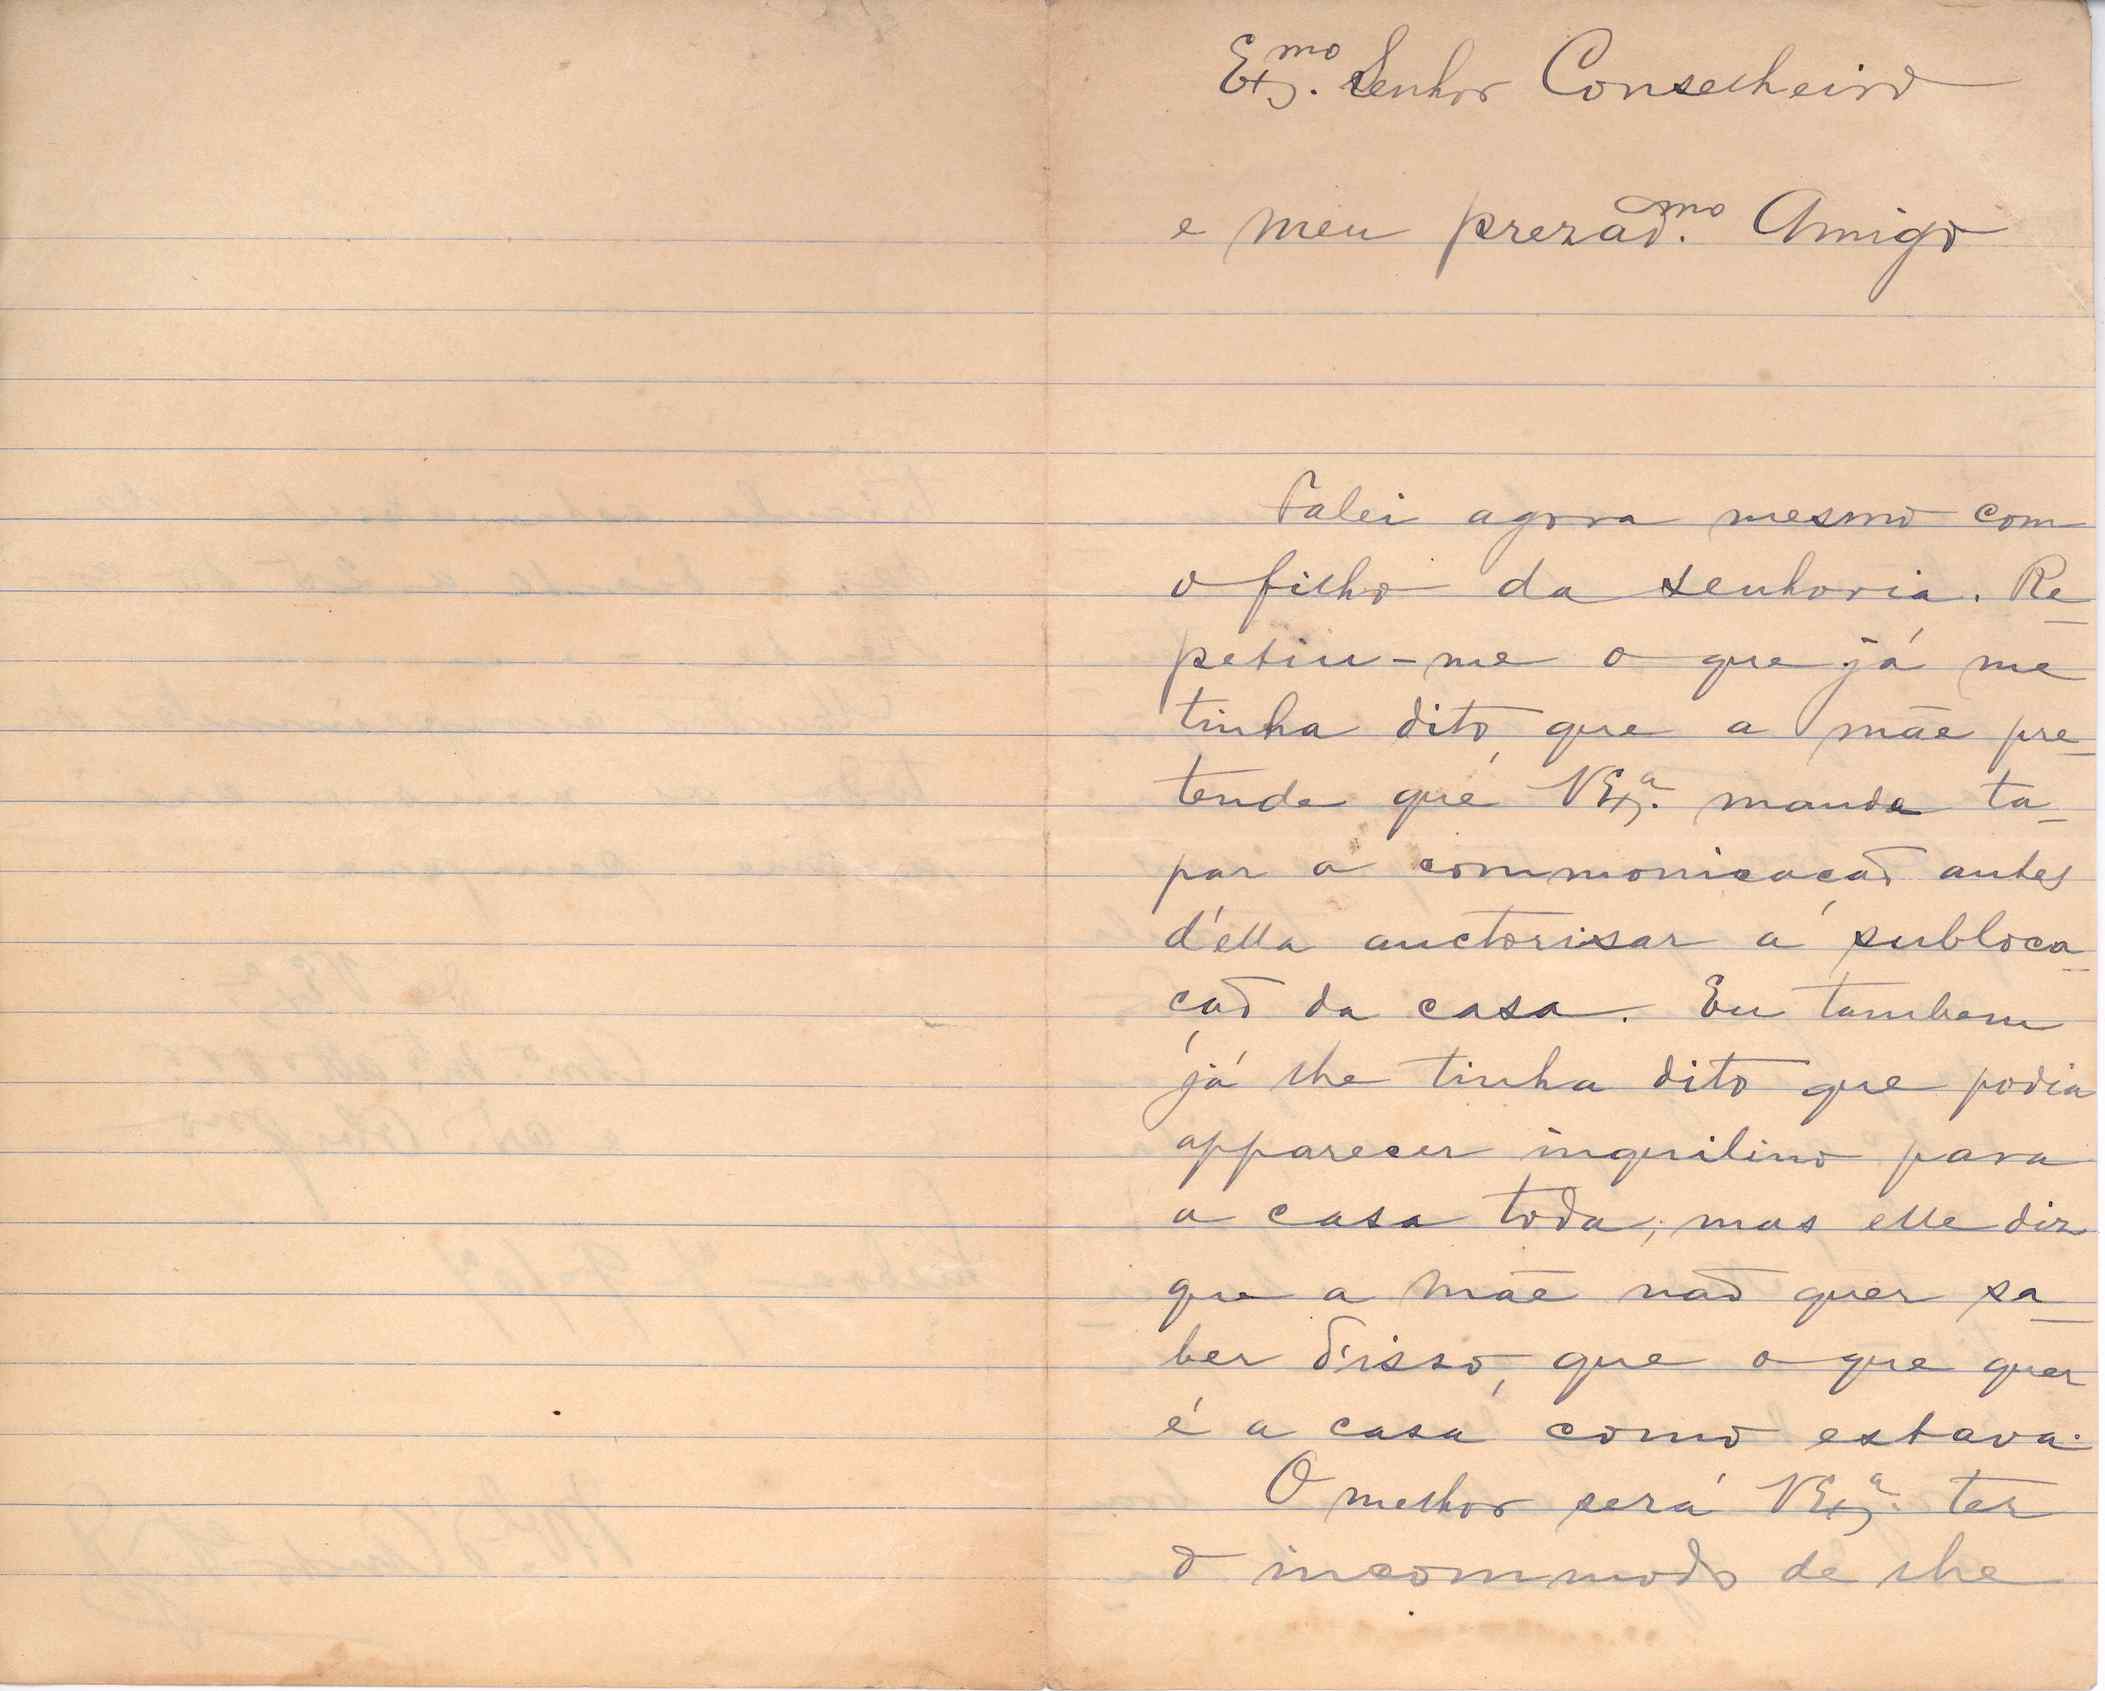 Exmo. Senhor Conselheiro
e meu prezadmo. Amigo
Falei agora mesmo com
o filho da senhoria. Re-
petiu-me o que já me
tinha dito, que a mãe pre-
tende que VExa. manda ta-
par a commonicação antes
d'ella auctorisar a subloca-
ção da casa. Eu tambem
já lhe tinha dito que podia
apparecer inquilino para
a casa toda; mas elle diz
que a mãe não quer sa-
ber d'isso, que o que quer
é a casa como estava.
O melhor será VExa. ter
o incommodo de lhe